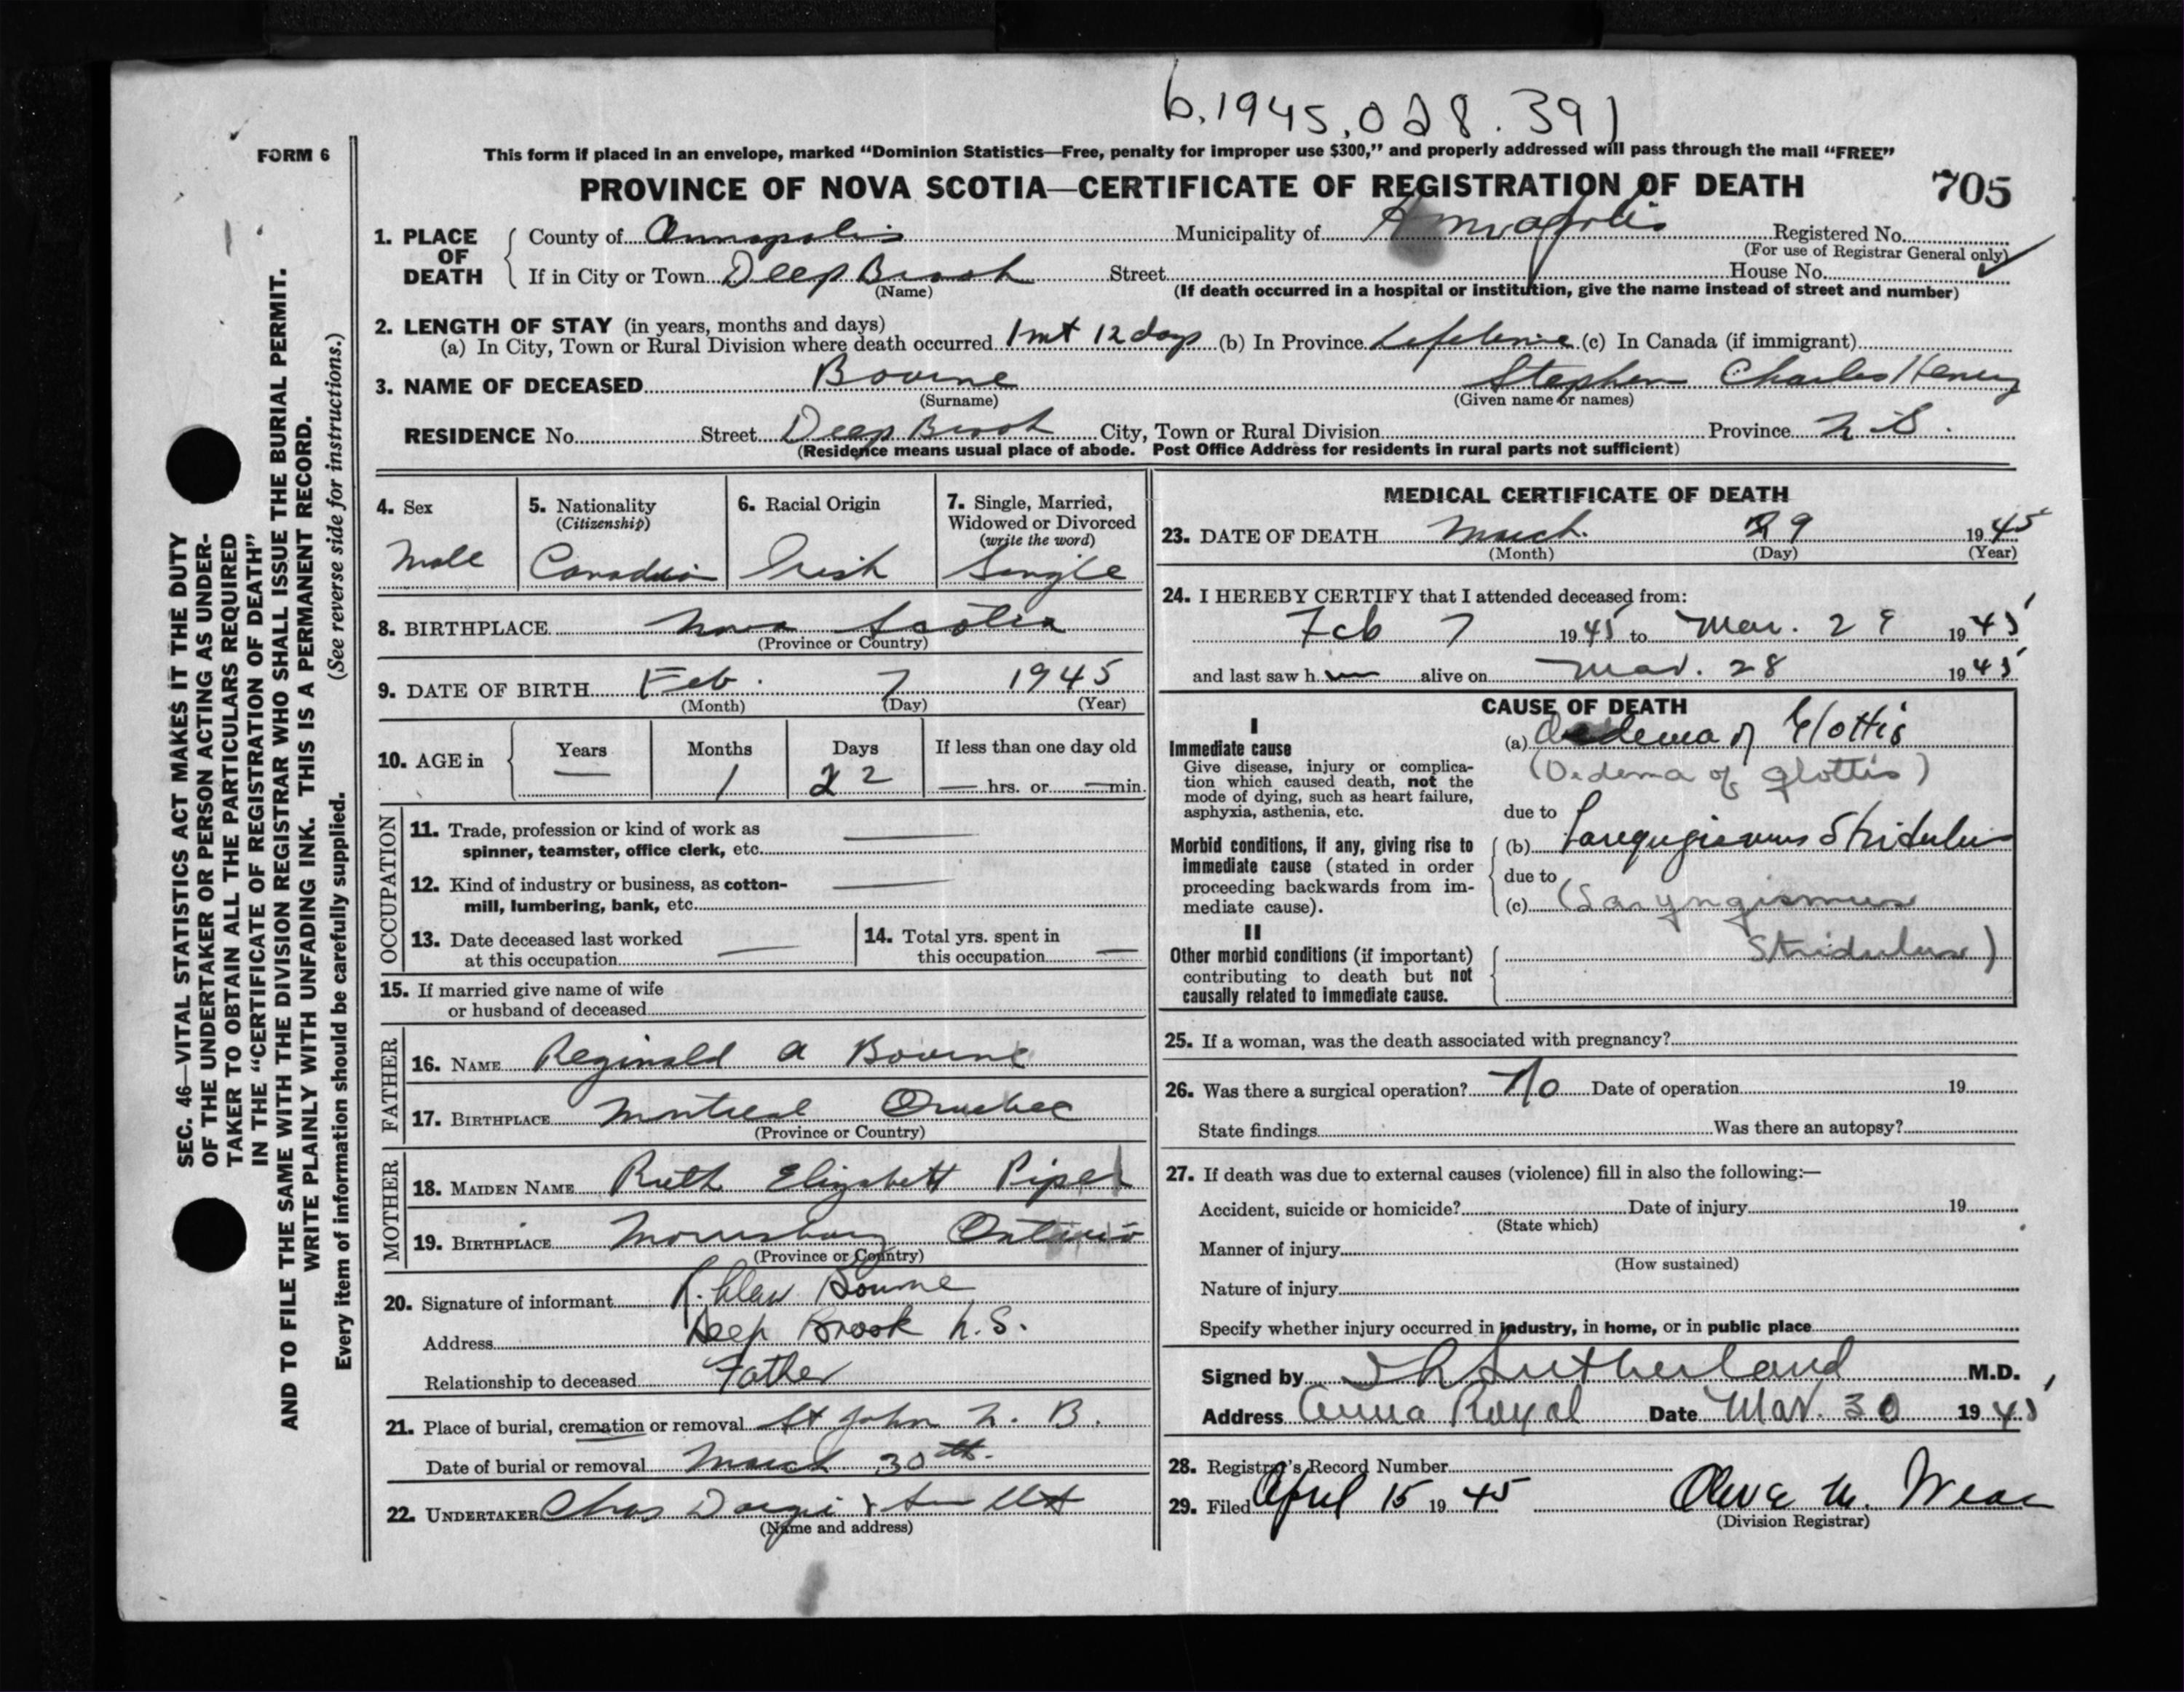 b.1945.028.391
FORM 6
This form if placed in an envelope, marked “Dominion Statistics—Free, penalty for improper use $300,” and properly addressed will pass through the mail “FREE”
PROVINCE OF NOVA SCOTIA—CERTIFICATE OF REGISTRATION OF DEATH 705
1. PLACE OF DEATH
County of Annapolis Municipality of Annapolis Registered No.
(For use of Registrar General only)
If in City or Town Deep Brook Street House No.
(Name) (If death occurred in a hospital or institution, give the name instead of street and number)
2. LENGTH OF STAY (in years, months and days)
(a) In City, Town or Rural Division where death occurred 1 mt 12 days (b) In Province Lifetime (c) In Canada (if immigrant)
3. NAME OF DECEASED Bourne Stephen Charles Henry
(Surname) (Given name or names)
RESIDENCE No. Street Deep Brook City, Town or Rural Division Province N.S.
(Residence means usual place of abode. Post Office Address for residents in rural parts not sufficient)
SEC. 46—VITAL STATISTICS ACT MAKES IT THE DUTY
OF THE UNDERTAKER OR PERSON ACTING AS UNDER-
TAKER TO OBTAIN ALL THE PARTICULARS REQUIRED
IN THE “CERTIFICATE OF REGISTRATION OF DEATH”
AND TO FILE THE SAME WITH THE DIVISION REGISTRAR WHO SHALL ISSUE THE BURIAL PERMIT.
WRITE PLAINLY WITH UNFADING INK. THIS IS A PERMANENT RECORD.
Every item of information should be carefully supplied. (See reverse side for instructions.)
4. Sex
Male
5. Nationality
(Citizenship)
Canadian
6. Racial Origin
Irish
7. Single, Married,
Widowed or Divorced
(write the word)
Single
8. BIRTHPLACE Nova Scotia
(Province or Country)
9. DATE OF BIRTH Feb. 7 1945
(Month) (Day) (Year)
10. AGE in
Years Months Days If less than one day old
— 1 22 — hrs. or — min.
OCCUPATION
11. Trade, profession or kind of work as
spinner, teamster, office clerk, etc. —
12. Kind of industry or business, as cotton-
mill, lumbering, bank, etc. —
13. Date deceased last worked
at this occupation —
14. Total yrs. spent in
this occupation —
15. If married give name of wife
or husband of deceased
FATHER
16. NAME Reginald A Bourne
17. BIRTHPLACE Montreal Quebec
(Province or Country)
MOTHER
18. MAIDEN NAME Ruth Elizabeth Piper
19. BIRTHPLACE Morrisburg Ontario
(Province or Country)
20. Signature of informant R. Bourne
Address Deep Brook N.S.
Relationship to deceased Father
21. Place of burial, cremation or removal St John N. B.
Date of burial or removal March 30th.
22. UNDERTAKER Chas
(Name and address)
MEDICAL CERTIFICATE OF DEATH
23. DATE OF DEATH March 29 1945
(Month) (Day) (Year)
24. I HEREBY CERTIFY that I attended deceased from:
Feb 7 1945 to Mar. 29 1945
and last saw h alive on Mar. 28 1945
CAUSE OF DEATH
I
Immediate cause
Give disease, injury or complica-
tion which caused death, not the
mode of dying, such as heart failure,
asphyxia, asthenia, etc.
(a) Oedema of Glottis
(Oedema of glottis)
due to
Morbid conditions, if any, giving rise to
immediate cause (stated in order
proceeding backwards from im-
mediate cause).
(b) Laryngismus Stridulus
due to
(c) (Laryngismus
Stridulus)
II
Other morbid conditions (if important)
contributing to death but not
causally related to immediate cause.
25. If a woman, was the death associated with pregnancy?
26. Was there a surgical operation? No Date of operation 19
State findings Was there an autopsy?
27. If death was due to external causes (violence) fill in also the following:—
Accident, suicide or homicide? Date of injury 19
(State which)
Manner of injury
(How sustained)
Nature of injury
Specify whether injury occurred in industry, in home, or in public place
Signed by Sutherland M.D.
Address Anna Royal Date Mar. 30 1945
28. Registrar's Record Number
29. Filed April 15 1945 M.
(Division Registrar)